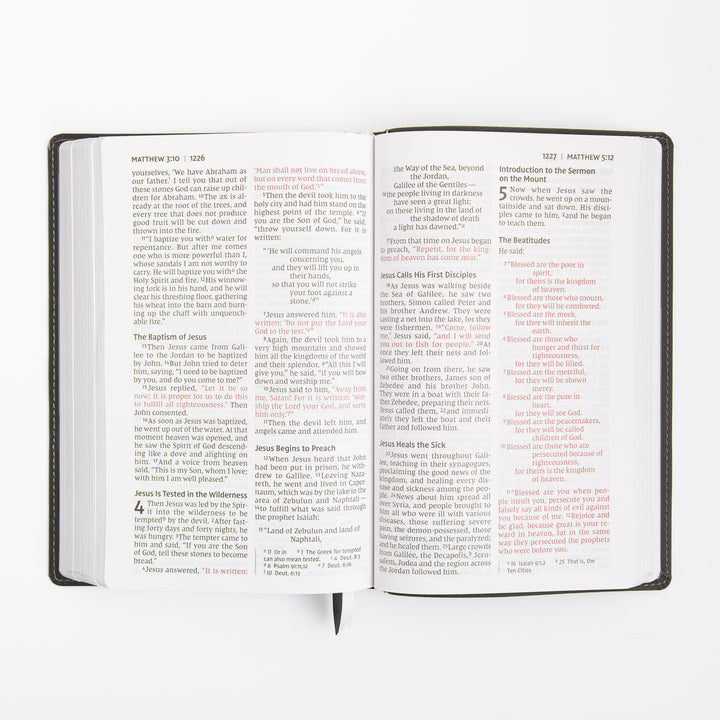 MATTHEW 3:10 | 1226
yourselves, ‘We have Abraham as
our father.’ I tell you that out of
these stones God can raise up chil-
dren for Abraham. 10The ax is al-
ready at the root of the trees, and
every tree that does not produce
good fruit will be cut down and
thrown into the fire.
11“I baptize you witha water for
repentance. But after me comes
one who is more powerful than I,
whose sandals I am not worthy to
carry. He will baptize you witha the
Holy Spirit and fire. 12His winnow-
ing fork is in his hand, and he will
clear his threshing floor, gathering
his wheat into the barn and burn-
ing up the chaff with unquench-
able fire.”
The Baptism of Jesus
13Then Jesus came from Gali-
lee to the Jordan to be baptized
by John. 14But John tried to deter
him, saying, “I need to be baptized
by you, and do you come to me?”
15Jesus replied, “Let it be so
now; it is proper for us to do this
to fulfill all righteousness.” Then
John consented.
16As soon as Jesus was baptized,
he went up out of the water. At that
moment heaven was opened, and
he saw the Spirit of God descend-
ing like a dove and alighting on
him. 17And a voice from heaven
said, “This is my Son, whom I love;
with him I am well pleased.”
Jesus Is Tested in the Wilderness
4 Then Jesus was led by the Spir-
it into the wilderness to be
temptedb by the devil. 2After fast-
ing forty days and forty nights, he
was hungry. 3The tempter came to
him and said, “If you are the Son
of God, tell these stones to become
bread.”
4Jesus answered, “It is written:
‘Man shall not live on bread alone,
but on every word that comes from
the mouth of God.’c”
5Then the devil took him to the
holy city and had him stand on the
highest point of the temple. 6“If
you are the Son of God,” he said,
“throw yourself down. For it is
written:
“ ‘He will command his angels
concerning you,
and they will lift you up in
their hands,
so that you will not strike
your foot against a
stone.’d”
7Jesus answered him, “It is also
written: ‘Do not put the Lord your
God to the test.’e”
8Again, the devil took him to a
very high mountain and showed
him all the kingdoms of the world
and their splendor. 9“All this I will
give you,” he said, “if you will bow
down and worship me.”
10Jesus said to him, “Away from
me, Satan! For it is written: ‘Wor-
ship the Lord your God, and serve
him only.’f”
11Then the devil left him, and
angels came and attended him.
Jesus Begins to Preach
12When Jesus heard that John
had been put in prison, he with-
drew to Galilee. 13Leaving Naza-
reth, he went and lived in Caper-
naum, which was by the lake in the
area of Zebulun and Naphtali—
14to fulfill what was said through
the prophet Isaiah:
15“Land of Zebulun and land of
Naphtali,
a 11 Or in b 1 The Greek for tempted
can also mean tested. c 4 Deut. 8:3
d 6 Psalm 91:11,12 e 7 Deut. 6:16
f 10 Deut. 6:13
1227 | MATTHEW 5:12
the Way of the Sea, beyond
the Jordan,
Galilee of the Gentiles—
16the people living in darkness
have seen a great light;
on those living in the land of
the shadow of death
a light has dawned.”a
17From that time on Jesus began
to preach, “Repent, for the king-
dom of heaven has come near.”
Jesus Calls His First Disciples
18As Jesus was walking beside
the Sea of Galilee, he saw two
brothers, Simon called Peter and
his brother Andrew. They were
casting a net into the lake, for they
were fishermen. 19“Come, follow
me,” Jesus said, “and I will send
you out to fish for people.” 20At
once they left their nets and fol-
lowed him.
21Going on from there, he saw
two other brothers, James son of
Zebedee and his brother John.
They were in a boat with their fa-
ther Zebedee, preparing their nets.
Jesus called them, 22and immedi-
ately they left the boat and their
father and followed him.
Jesus Heals the Sick
23Jesus went throughout Gali-
lee, teaching in their synagogues,
proclaiming the good news of the
kingdom, and healing every dis-
ease and sickness among the peo-
ple. 24News about him spread all
over Syria, and people brought to
him all who were ill with various
diseases, those suffering severe
pain, the demon-possessed, those
having seizures, and the paralyzed;
and he healed them. 25Large crowds
from Galilee, the Decapolis,b Jeru-
salem, Judea and the region across
the Jordan followed him.
Introduction to the Sermon
on the Mount
5 Now when Jesus saw the
crowds, he went up on a moun-
tainside and sat down. His disci-
ples came to him, 2and he began
to teach them.
The Beatitudes
He said:
3“Blessed are the poor in
spirit,
for theirs is the kingdom
of heaven.
4Blessed are those who mourn,
for they will be comforted.
5Blessed are the meek,
for they will inherit the
earth.
6Blessed are those who
hunger and thirst for
righteousness,
for they will be filled.
7Blessed are the merciful,
for they will be shown
mercy.
8Blessed are the pure in
heart,
for they will see God.
9Blessed are the peacemakers,
for they will be called
children of God.
10Blessed are those who are
persecuted because of
righteousness,
for theirs is the kingdom
of heaven.
11“Blessed are you when peo-
ple insult you, persecute you and
falsely say all kinds of evil against
you because of me. 12Rejoice and
be glad, because great is your re-
ward in heaven, for in the same
way they persecuted the prophets
who were before you.
a 16 Isaiah 9:1,2 b 25 That is, the
Ten Cities